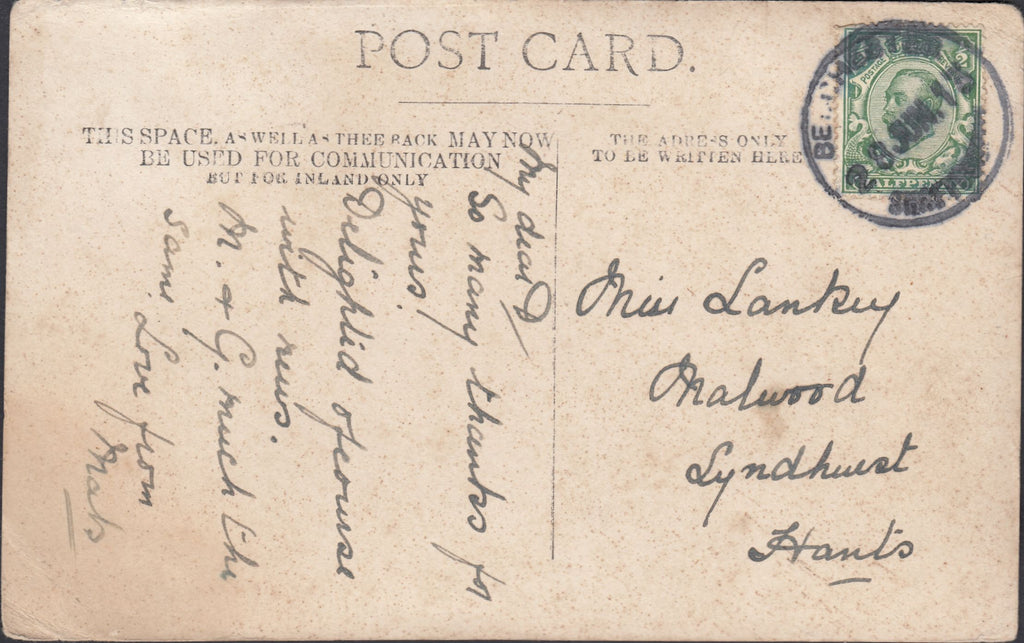 POST CARD.
THIS SPACE, AS WELL AS THEE BACK MAY NOW
BE USED FOR COMMUNICATION
BUT FOR INLAND ONLY
THE ADRESS ONLY
TO BE WRITTEN HERE
28 JUN 12
HALFPENNY
My dear D
So many thanks for
yours.
Delighted of course
with news.
M. & G. much the
same. Love from
Miss Lankey
Malwood
Lyndhurst
Hants